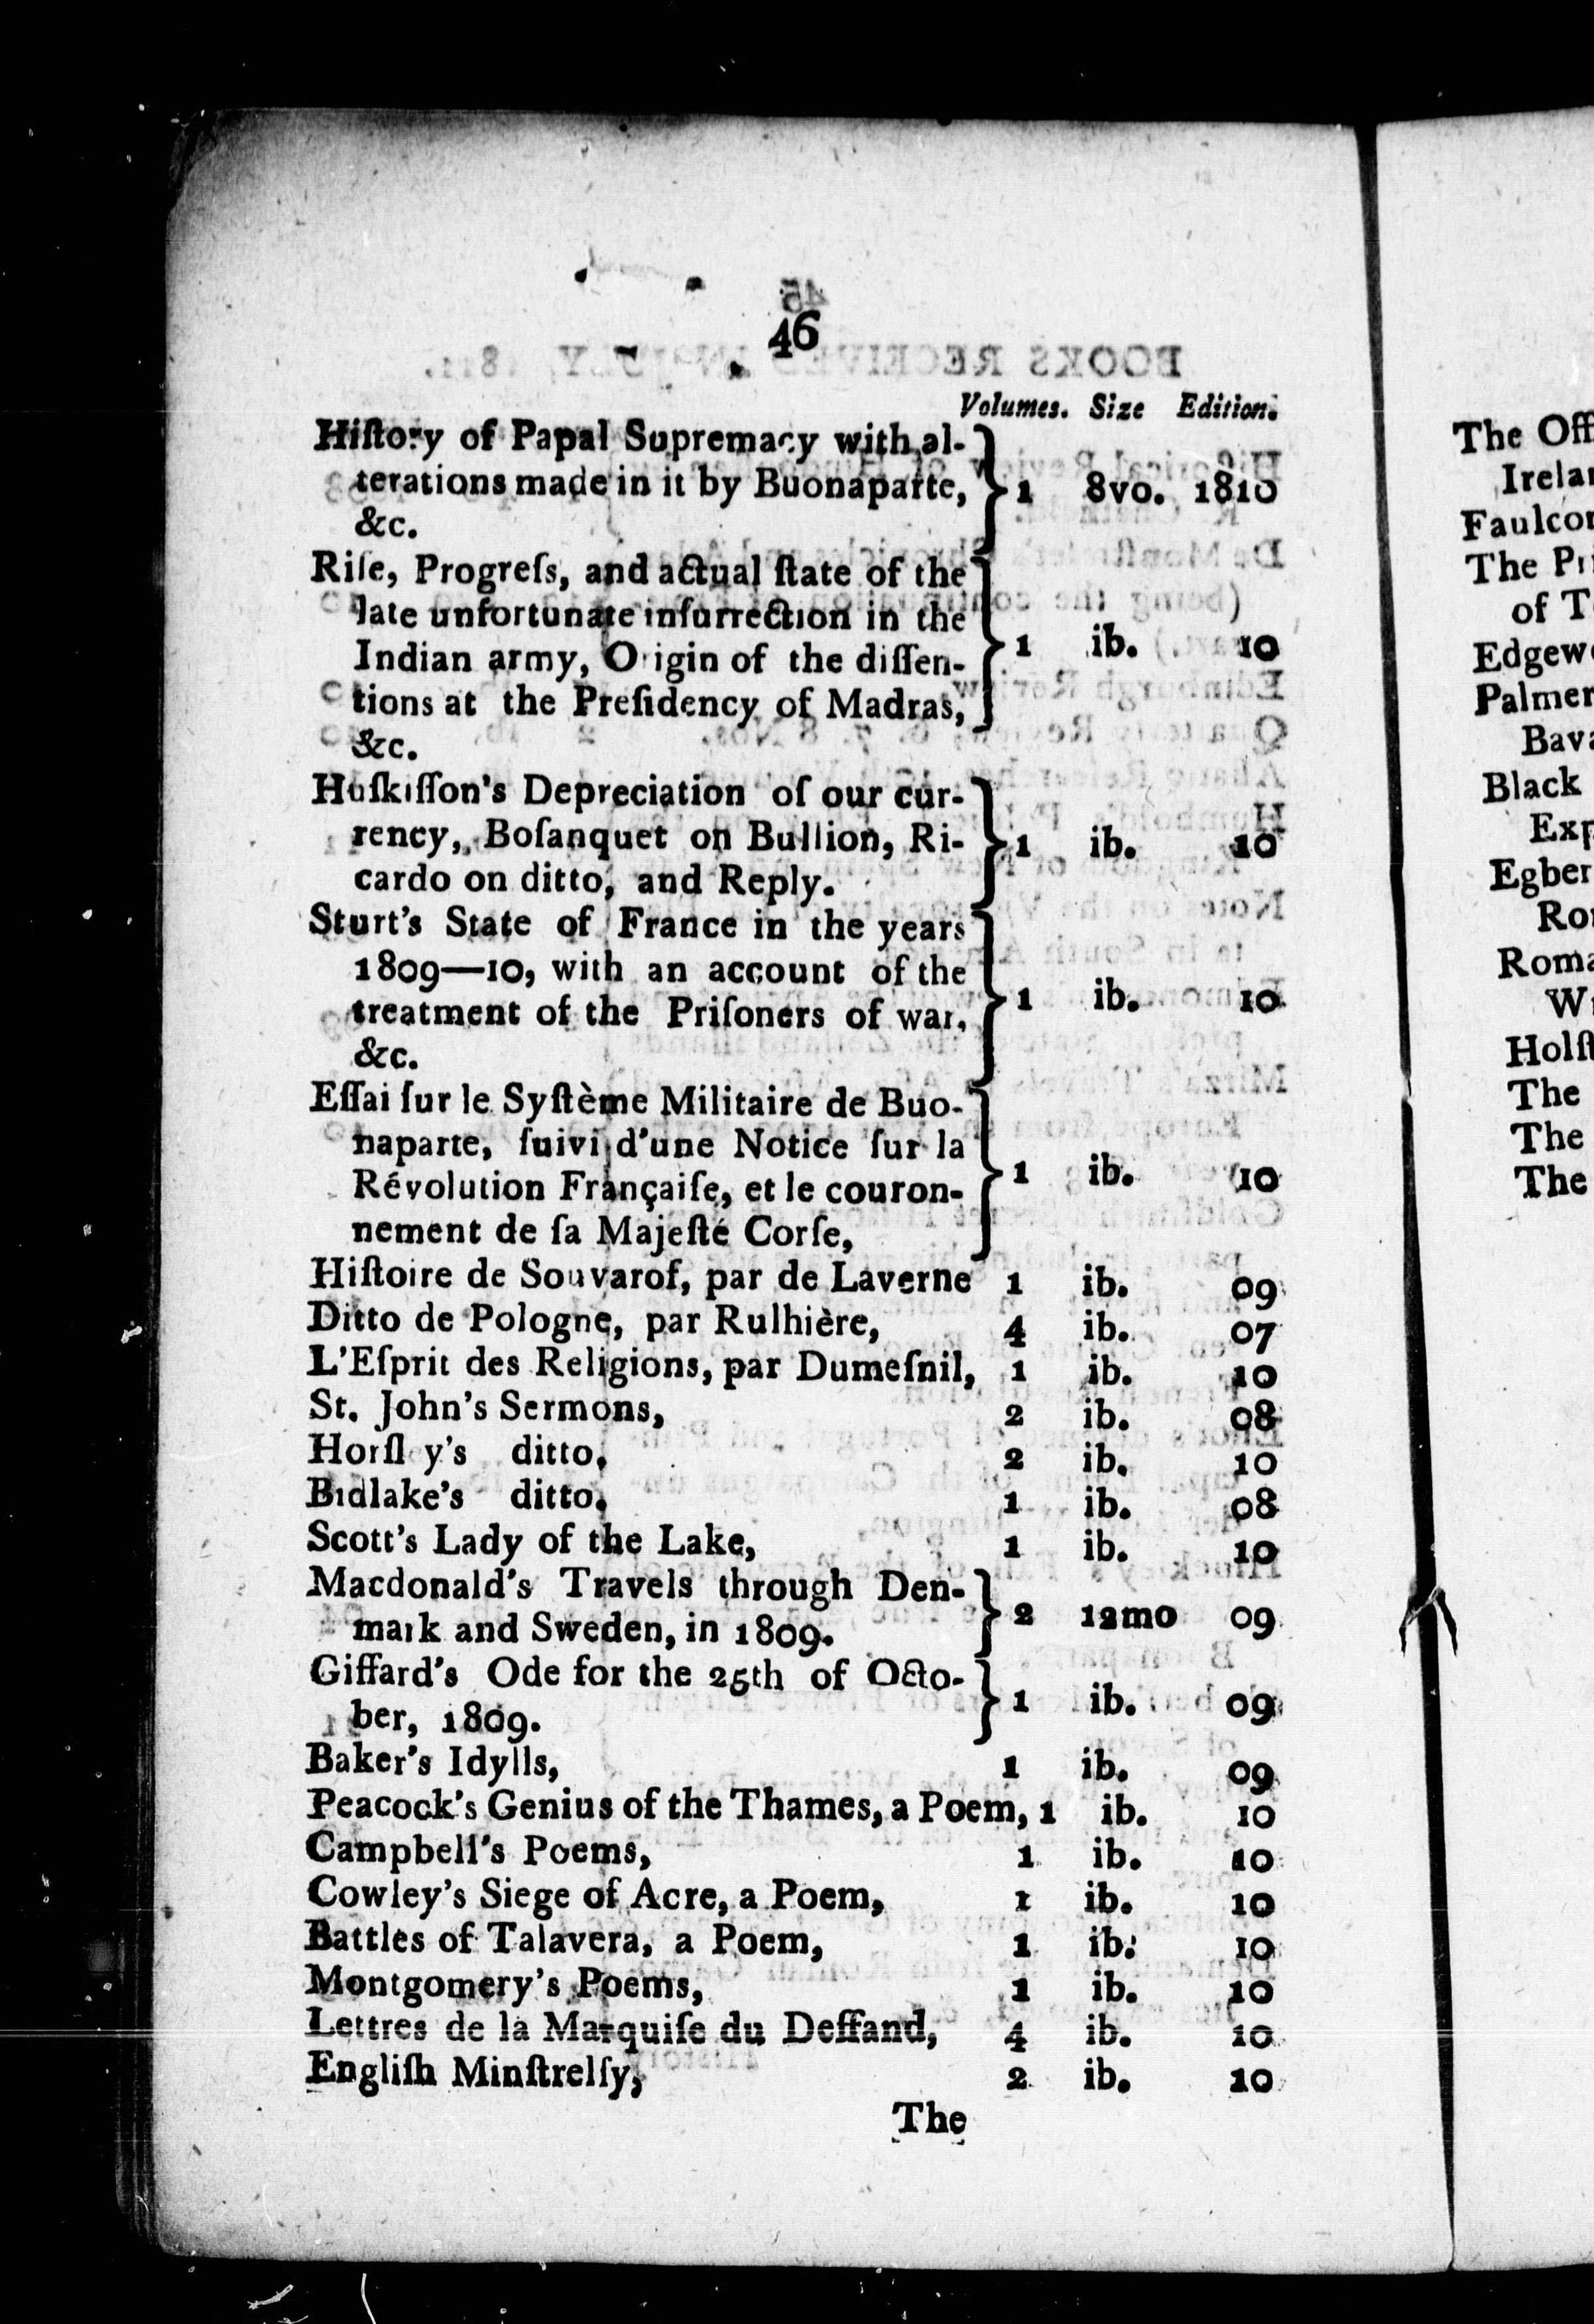 46
Volumes. Size Edition.
Hiſtory of Papal Supremacy with al-
terations made in it by Buonaparte, 1 8vo. 1810
&c.
Riſe, Progreſs, and actual ſtate of the
late unfortunate inſurrection in the
Indian army, O igin of the diſſen- 1 ib. 10
tions at the Preſidency of Madras,
&c.
Huſkiſſon's Depreciation of our cur-
rency, Boſanquet on Bullion, Ri- 1 ib. 10
cardo on ditto, and Reply.
Sturt's State of France in the years
1809—10, with an account of the
treatment of the Priſoners of war, 1 ib. 10
&c.
Eſſai ſur le Syſtème Militaire de Buo-
naparte, ſuivi d'une Notice ſur la
Révolution Françaiſe, et le couron- 1 ib. 10
nement de ſa Majeſté Corſe,
Hiſtoire de Souvarof, par de Laverne 1 ib. 09
Ditto de Pologne, par Rulhière, 4 ib. 07
L'Eſprit des Religions, par Dumeſnil, 1 ib. 10
St. John's Sermons, 2 ib. 08
Horſl y's ditto, 2 ib. 10
Bidlake's ditto, 1 ib. 08
Scott's Lady of the Lake, 1 ib. 10
Macdonald's Travels through Den-
mark and Sweden, in 1809. 2 12mo 09
Giffard's Ode for the 25th of Octo-
ber, 1809. 1 ib. 09
Baker's Idylls, 1 ib. 09
Peacock's Genius of the Thames, a Poem, 1 ib. 10
Campbell's Poems, 1 ib. 10
Cowley's Siege of Acre, a Poem, 1 ib. 10
Battles of Talavera, a Poem, 1 ib. 10
Montgomery's Poems, 1 ib. 10
Lettres de la Marquiſe du Deffand, 4 ib. 10
Engliſh Minſtrelſy, 2 ib. 10
The
The Off
Irela
Faulco
The P
of T
Edgew
Palmer
Bava
Black
Exp
Egber
Ro
Roma
W
Holſt
The
The
The